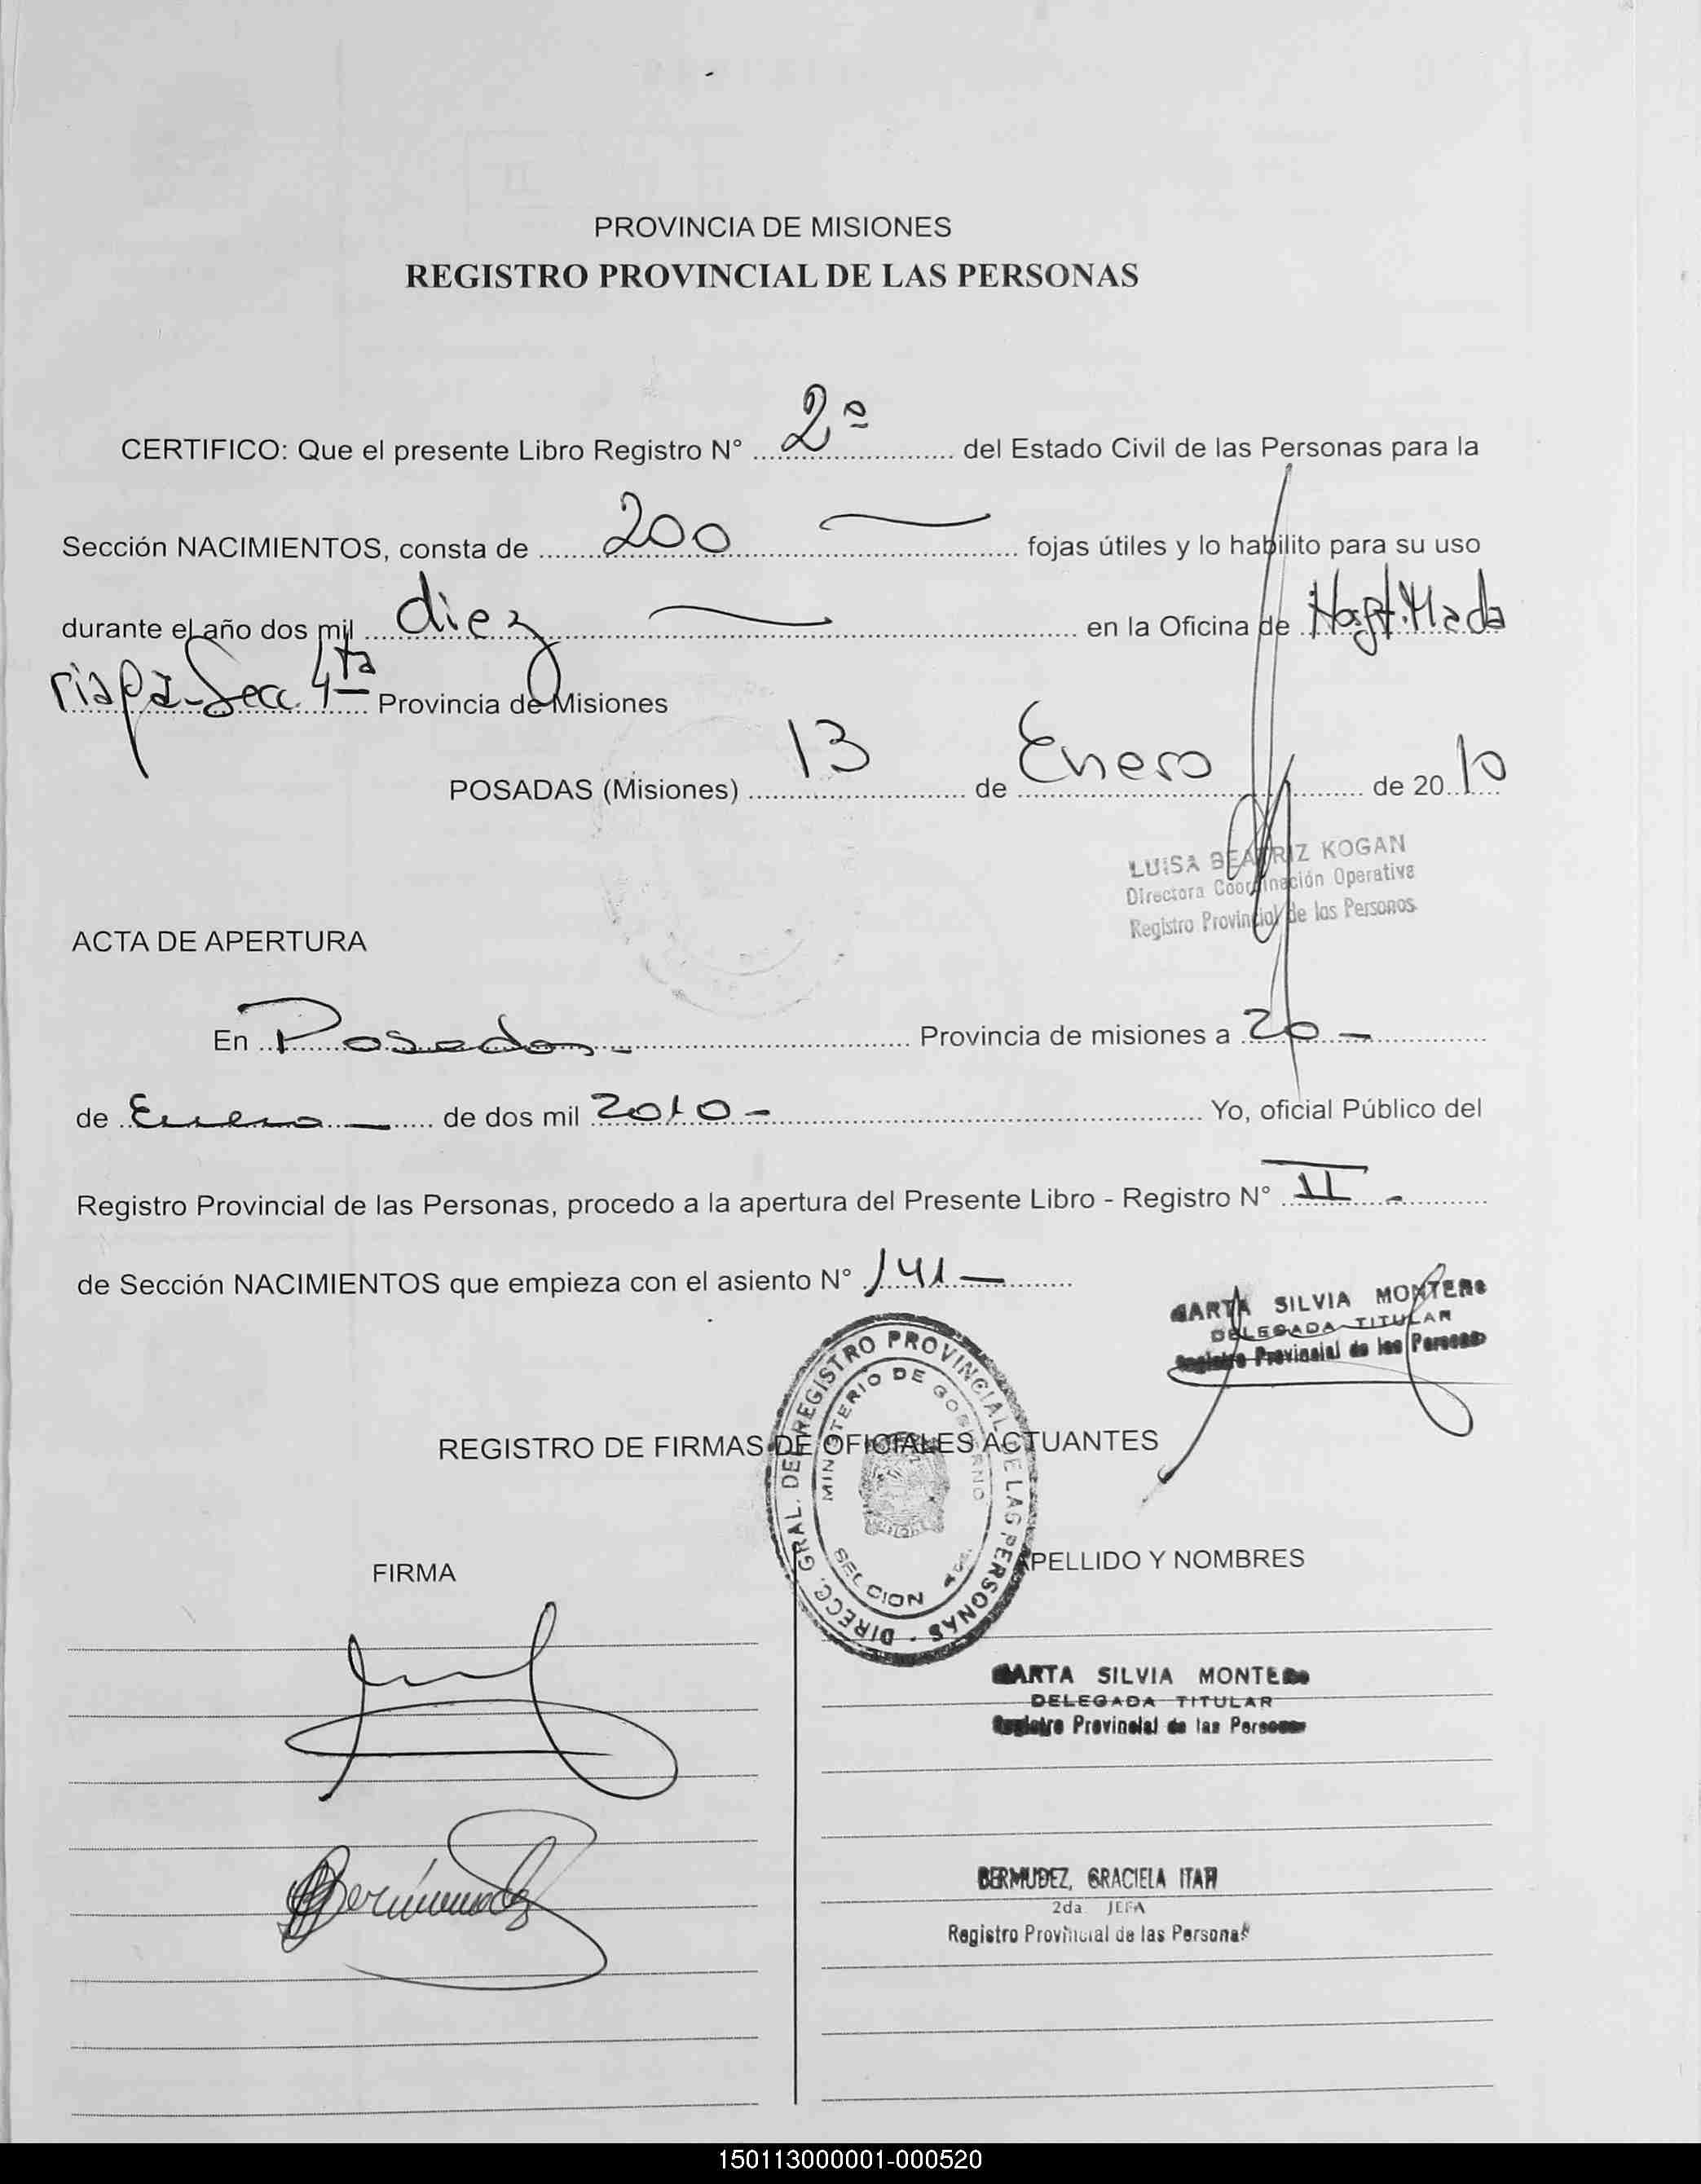 PROVINCIA DE MISIONES
REGISTRO PROVINCIAL DE LAS PERSONAS
CERTIFICO: Que el presente Libro Registro N° 2º del Estado Civil de las Personas para la
Sección NACIMIENTOS, consta de 200 fojas útiles y lo habilito para su uso
durante el año dos mil diez en la Oficina de Hospt. Mada
riaga - Secc. 4ta Provincia de Misiones
POSADAS (Misiones) 13 de Enero de 2010
LUISA BEATRIZ KOGAN
Directora Coordinación Operativa
Registro Provincial de las Personas
ACTA DE APERTURA
En Posadas - Provincia de misiones a 20 -
de Enero de dos mil 2010 - Yo, oficial Público del
Registro Provincial de las Personas, procedo a la apertura del Presente Libro - Registro N° II -
de Sección NACIMIENTOS que empieza con el asiento N° 141 -
MARTA SILVIA MONTERO
DELEGADA TITULAR
Registro Provincial de las Personas
DIRECC. GRAL. DEL REGISTRO PROVINCIAL DE LAS PERSONAS
MINISTERIO DE GOBIERNO
SECCION 4ta.
REGISTRO DE FIRMAS DE OFICIALES ACTUANTES
FIRMA APELLIDO Y NOMBRES
MARTA SILVIA MONTERO
DELEGADA TITULAR
Registro Provincial de las Personas
Bermudez
BERMUDEZ, GRACIELA ITATI
2da JEFA
Registro Provincial de las Personas
150113000001-000520